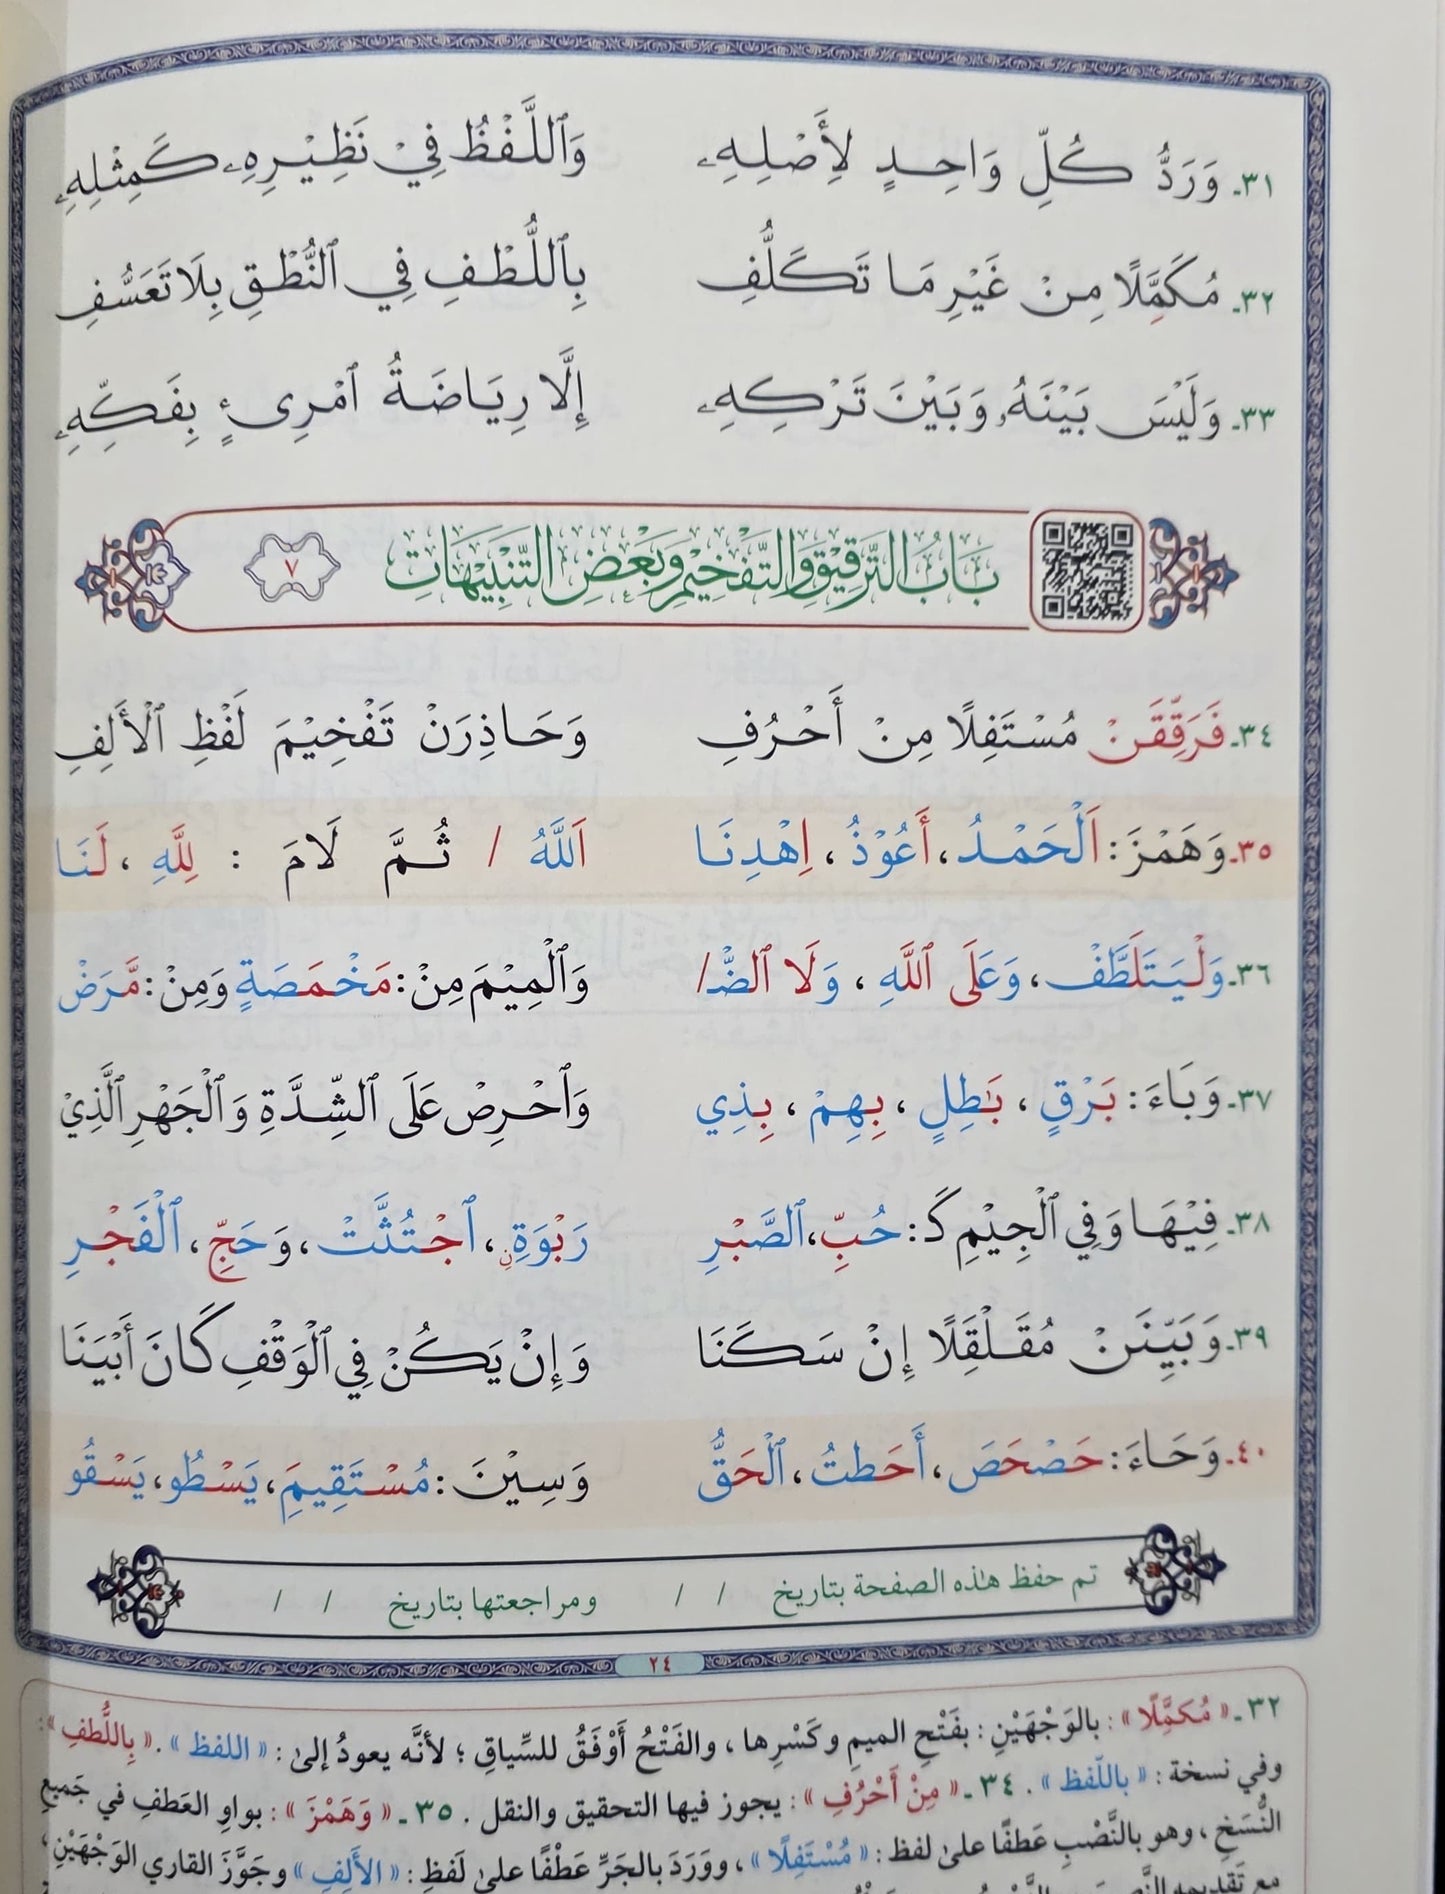 ٣١ـ وَرَدُّ كُلِّ وَاحِدٍ لِأَصْلِهِۦ وَٱللَّفْظُ فِيْ نَظِيْرِهِۦ كَمِثْلِهِۦ
٣٢ـ مُكَمَِّلًا مِنْ غَيْرِ مَا تَكَلُّفِ بِٱللُّطْفِ فِي ٱلنُّطْقِ بِلَا تَعَسُّفِ
٣٣ـ وَلَيْسَ بَيْنَهُۥ وَبَيْنَ تَرْكِهِۦ إِلَّا رِيَاضَةُ ٱمْرِىءٍ بِفَكِّهِۦ
بَابُ التَّرقِيقِ وَالتَّفْخِيمِ وَبَعْضِ التَّنْبِيهَاتِ ٧
٣٤ـ فَرَقِّقَنْ مُسْتَفِلًا مِنْ أَحْرُفِ وَحَاذِرَنْ تَفْخِيْمَ لَفْظِ ٱلْأَلِفِ
٣٥ـ وَهَمْزَ: اَلْحَمْدُ، أَعُوْذُ، اِهْدِنَا اَللَّهُ / ثُمَّ لَامَ : لِلَّهِ ، لَنَا
٣٦ـ وَلْيَتَلَطَّفْ، وَعَلَى ٱللَّهِ ، وَلَا ٱلضْـ/ وَٱلْمِيْمَ مِنْ: مَخْمَصَةٍ وَمِنْ: مَّرَضْ
٣٧ـ وَبَاءَ: بَرْقٍ ، بَٰطِلٍ ، بِهِمْ ، بِذِي وَٱحْرِصْ عَلَى ٱلشِّدَّةِ وَٱلْجَهْرِ ٱلَّذِيْ
٣٨ـ فِيْهَا وَفِي ٱلْجِيْمِ كَـ: حُبِّ، ٱلصَّبْرِ رَبْوَةٍ، ٱجْتُثَّتْ، وَحَجِّ، ٱلْفَجْرِ
٣٩ـ وَبَيِّنَنْ مُقَلْقِلًا إِنْ سَكَنَا وَإِنْ يَكُنْ فِي ٱلْوَقْفِ كَانَ أَبْيَنَا
٤٠ـ وَحَاءَ: حَصْحَصَ، أَحَطتُ، ٱلْحَقُّ وَسِيْنَ: مُسْتَقِيمَِ، يَسْطُو، يَسْقُو
تم حفظ هذه الصفحة بتاريخ / / ومراجعتها بتاريخ / /
٢٤
٣٢ـ « مُكَمَِّلًا » : بالوَجْهَيْنِ : بفَتْحِ الميمِ وكَسْرِها ، والفَتْحُ أَوْفَقُ للسِّياقِ ؛ لأنَّه يعودُ إلىٰ : « اللفظ » . « بِاللُّطفِ » :
وفي نسخة : « باللّفظ » . ٣٤ـ « مِنْ أَحْرُفِ » : يجوز فيها التحقيق والنقل . ٣٥ـ « وَهَمْزَ » : بواوِ العَطفِ في جَميعِ
النُّسَخِ ، وهو بالنَّصْبِ عَطفًا علىٰ لفظ : « مُسْتَفِلًا » ، ووَرَدَ بالجَرِّ عَطْفًا علىٰ لَفظِ : « الأَلِفِ » وجَوَّزَ القاري الوَجْهَيْنِ،
مع تَقديمِهِ